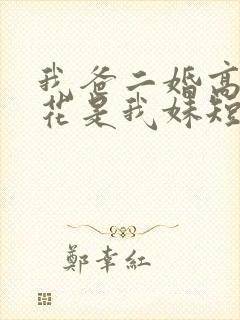 我爸二婚高
花是我妹短
鄭幸紅